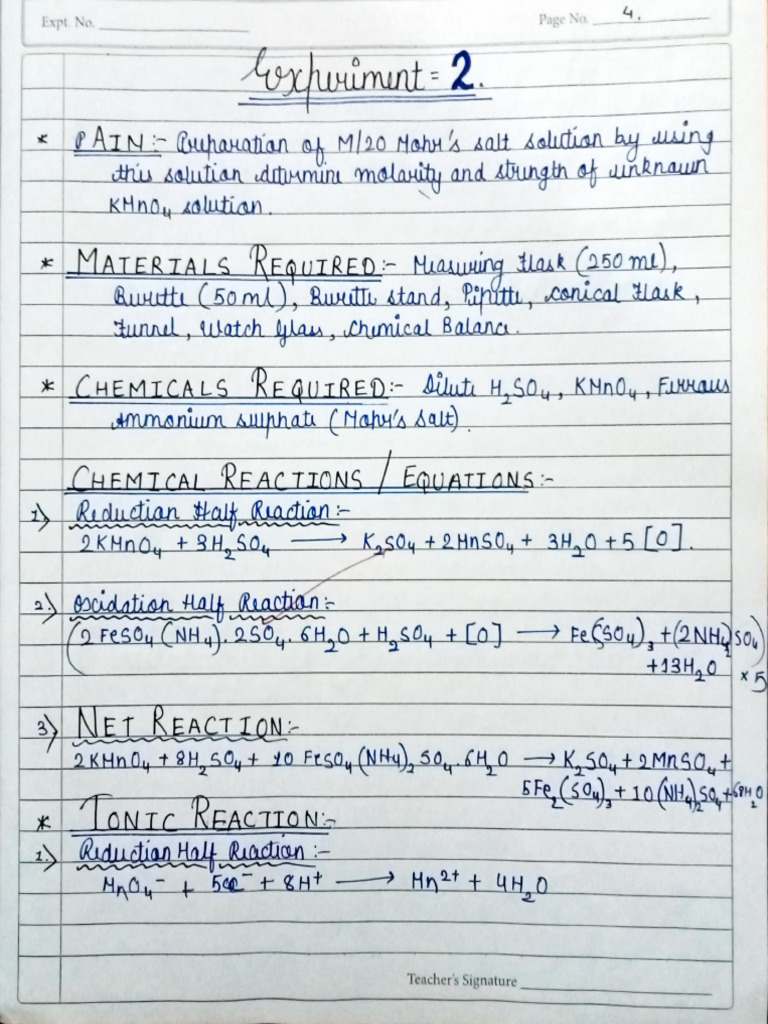 Expt. No.
Page No. 4.
Experiment = 2.
* AIN:- Preparation of M/20 Mohr's salt solution by using
this solution ditirmine molarity and strength of unknown
KMnO₄ solution.
* MATERIALS REQUIRED:- Measuring Flask (250 ml),
Burette (50ml), Burette stand, Pipette, conical Flask,
Funnel, Watch Glass, Chemical Balance.
* CHEMICALS REQUIRED:- Dilute H₂SO₄, KMnO₄, Ferraus
Ammonium sulphate (Mohr's salt)
CHEMICAL REACTIONS / EQUATIONS:-
1) Reduction Half Reaction:-
2KMnO₄ + 3H₂SO₄ ⟶ K₂SO₄ + 2MnSO₄ + 3H₂O + 5[O].
2.) Oxidation Half Reaction:-
(2FeSO₄(NH₄).2SO₄.6H₂O + H₂SO₄ + [O] ⟶ Fe(SO₄)₃ + (2NH₄)₂SO₄)
+13H₂O × 5
3) NET REACTION:-
2KMnO₄ + 8H₂SO₄ + 10 FeSO₄(NH₄)₂SO₄.6H₂O ⟶ K₂SO₄ + 2MnSO₄ +
5Fe₂(SO₄)₃ + 10(NH₄)₂SO₄ + 68H₂O
* IONIC REACTION:-
1.) Reduction Half Reaction:-
MnO₄⁻ + 5e⁻ + 8H⁺ ⟶ Mn²⁺ + 4H₂O
Teacher's Signature